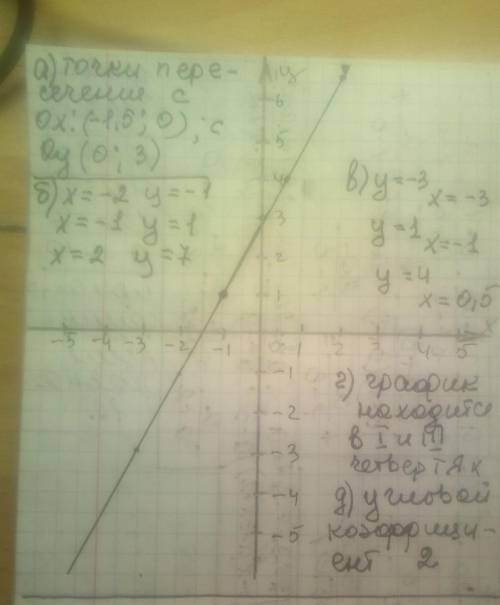 а) точки пере-
сечение с
Ох: (-1,5; 0), с
Оу (0; 3)
б) х = -2 у = -1
х = -1 у = 1
х = 2 у = 7
в) у = -3
х = -3
у = 1
х = -1
у = 4
х = 0,5
г) график
находится
в I и III
четвертях
д) угловой
коэффици-
ент 2
у
6
5
4
3
2
1
-5 -4 -3 -2 -1 0 1 2 3 4 5 х
-1
-2
-3
-4
-5